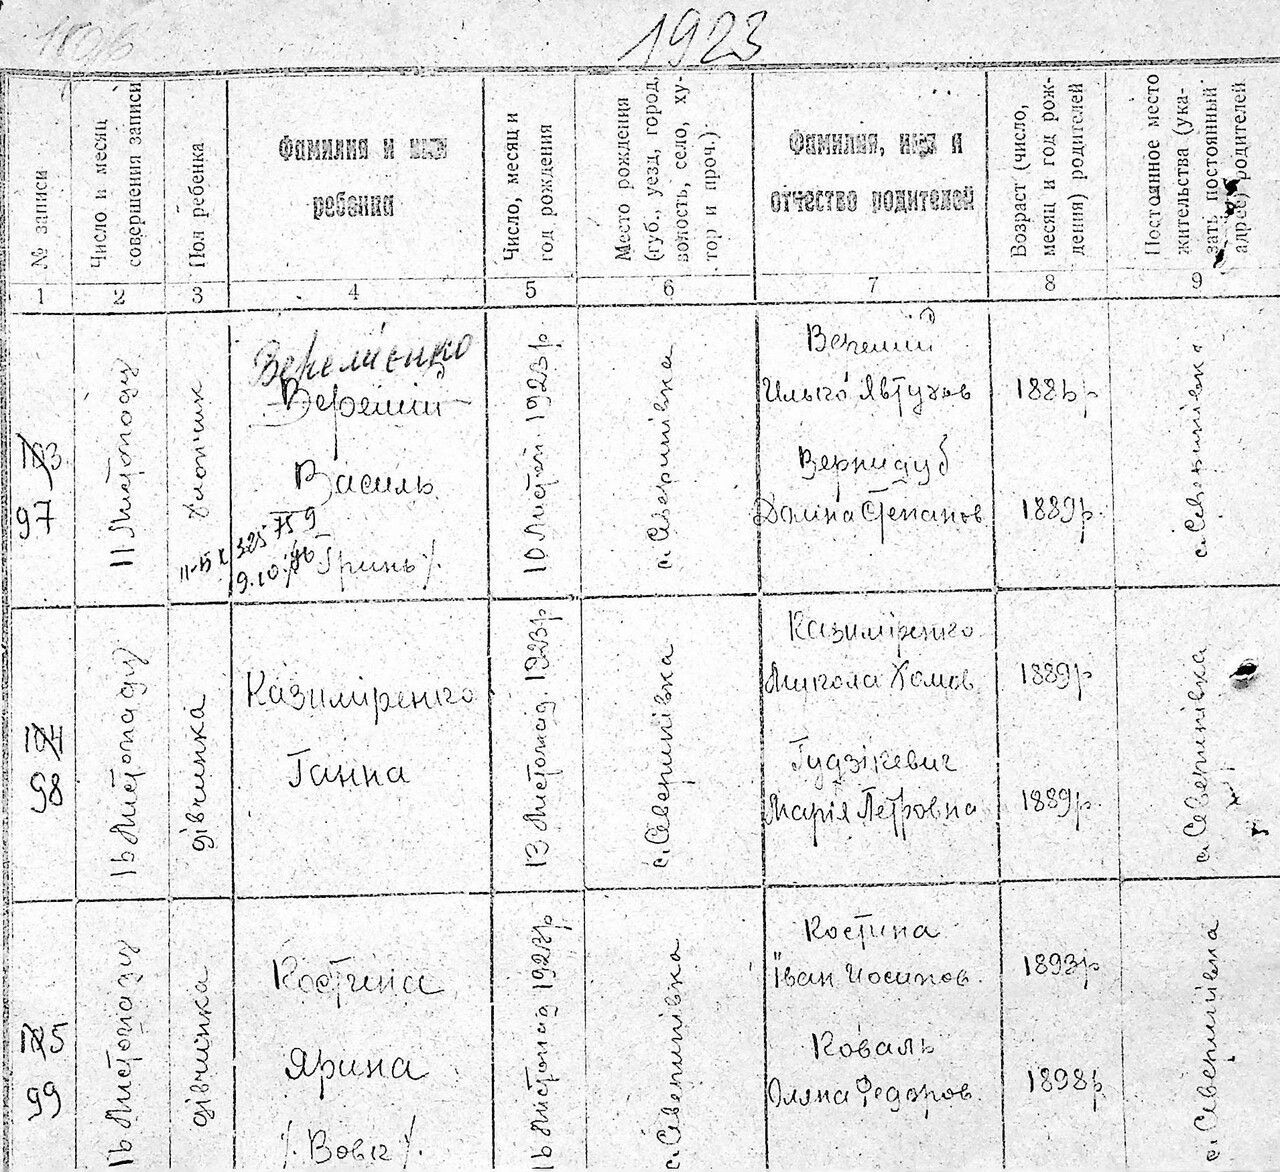 1923
№ записи
Число и месяц совершения записи
Пол ребенка
Фамилия и имя
ребенка
Число, месяц и
год рождения
Место рождения
(губ., уезд, город,
волость, село, ху-
тор и проч.)
Фамилия, имя и
отчество родителей
Возраст (число,
месяц и год рож-
дения) родителей
Постоянное место
жительства (ука-
зать постоянный
адрес) родителей
1 2 3 4 5 6 7 8 9
103
97
11 Листопаду
хлопчик
Веремієнко
Веремій
Василь
10 Листоп. 1923р
с. Северинівка
Веремій
Явтухов
Вернидуб
Степанов
1889р.
с. Северинівка
104
98
дівчинка
Казиміренко
Ганна
13 Листопад. 1923р
с. Северинівка
Казиміренко
Микола Хомов
Гудзікевич
Марія Петровна
1889р
1889р.
с. Северинівка
105
99
дівчинка
Костина
Ярина
с. Северинівка
Костина
Іван Йосипов.
Коваль
Оляна Федоров.
1893р
1898р
с. Северинівка